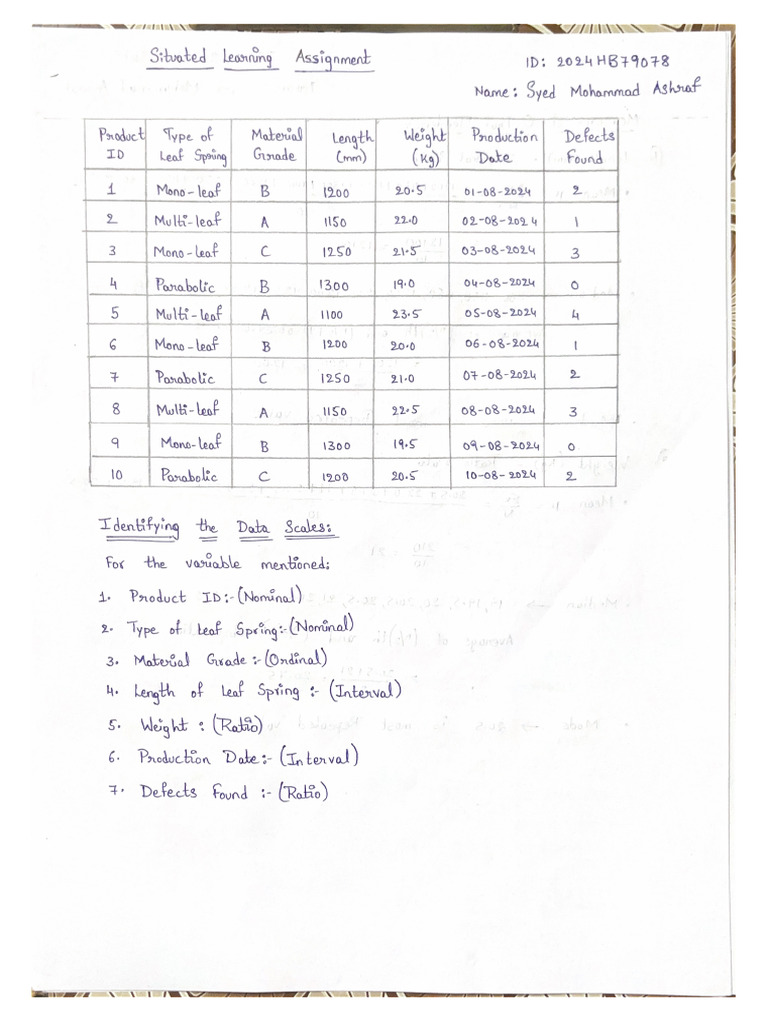 Situated Learning Assignment
ID: 2024HB79078
Name: Syed Mohammad Ashraf
Product ID | Type of Leaf Spring | Material Grade | Length (mm) | Weight (Kg) | Production Date | Defects Found
1 | Mono-leaf | B | 1200 | 20.5 | 01-08-2024 | 2
2 | Multi-leaf | A | 1150 | 22.0 | 02-08-2024 | 1
3 | Mono-leaf | C | 1250 | 21.5 | 03-08-2024 | 3
4 | Parabolic | B | 1300 | 19.0 | 04-08-2024 | 0
5 | Multi-leaf | A | 1100 | 23.5 | 05-08-2024 | 4
6 | Mono-leaf | B | 1200 | 20.0 | 06-08-2024 | 1
7 | Parabolic | C | 1250 | 21.0 | 07-08-2024 | 2
8 | Multi-leaf | A | 1150 | 22.5 | 08-08-2024 | 3
9 | Mono-leaf | B | 1300 | 19.5 | 09-08-2024 | 0
10 | Parabolic | C | 1200 | 20.5 | 10-08-2024 | 2
Identifying the Data Scales:
For the variable mentioned:
1. Product ID:-(Nominal)
2. Type of Leaf Spring:-(Nominal)
3. Material Grade:-(Ordinal)
4. Length of Leaf Spring :- (Interval)
5. Weight : (Ratio)
6. Production Date:- (Interval)
7. Defects Found :- (Ratio)